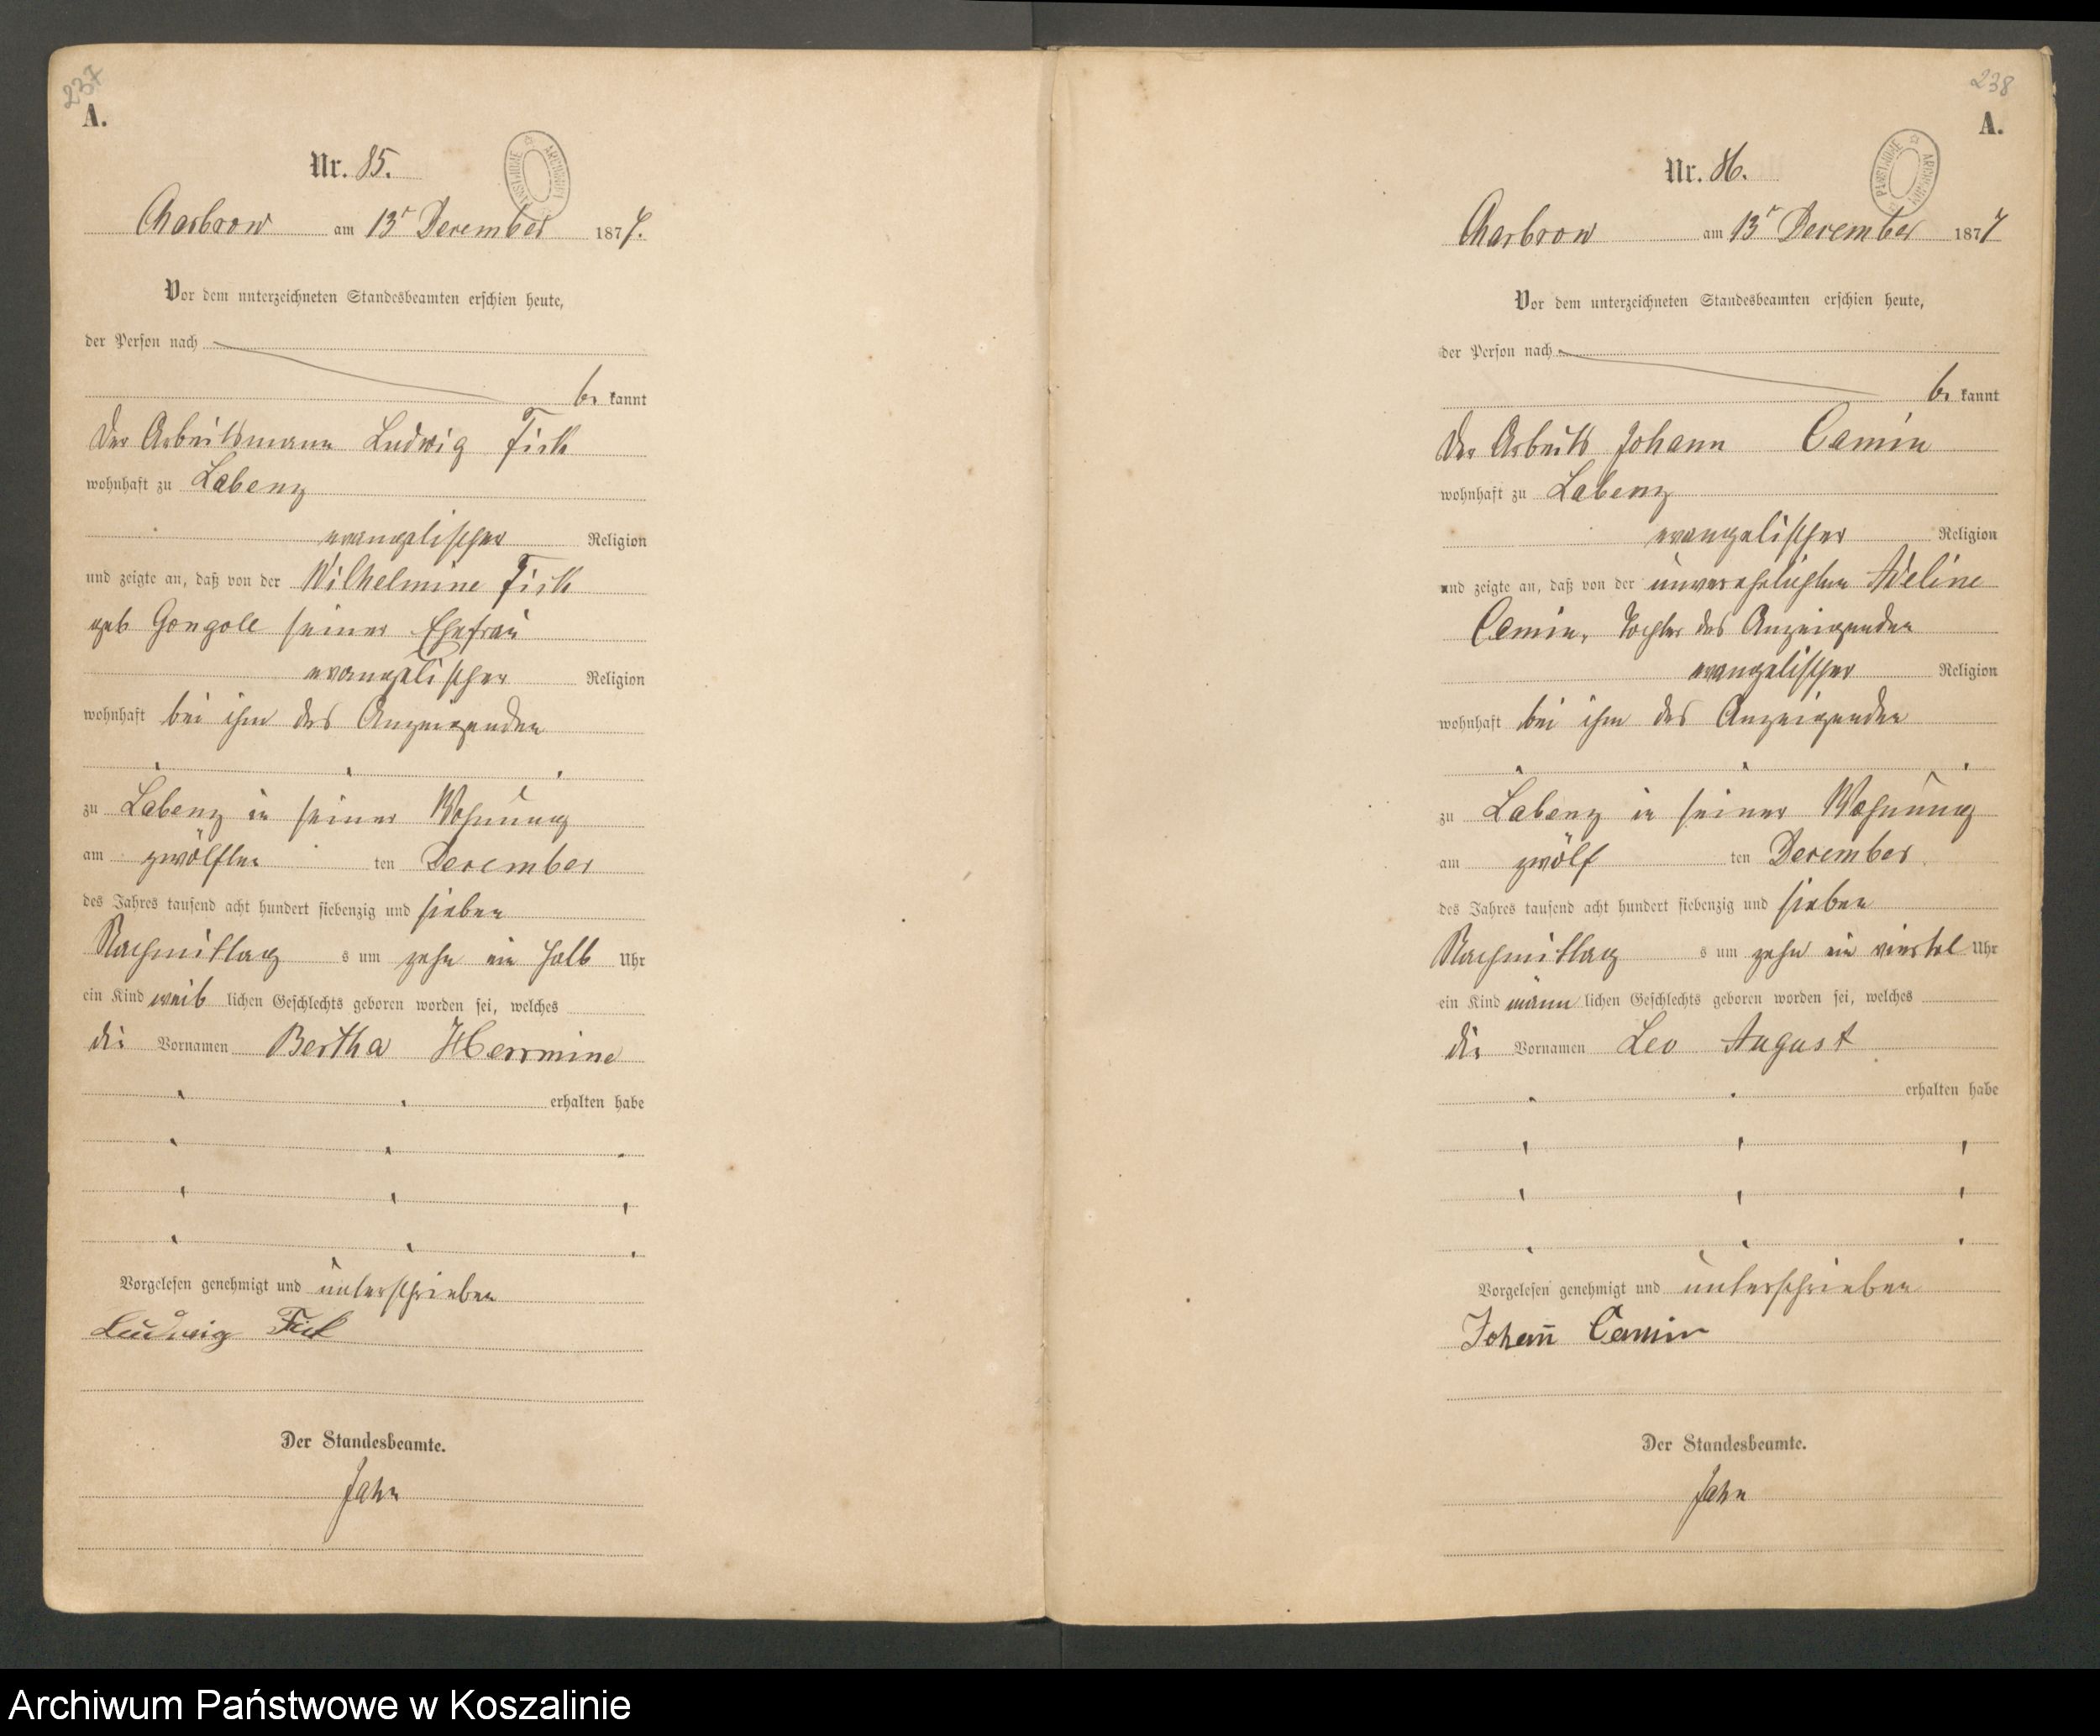 237
A.
Nr. 85.
ARCHIWUM PAŃSTWOWE
Charbrow am 13t December 1877.
Vor dem unterzeichneten Standesbeamten erschien heute,
der Person nach
be kannt
der Arbeitsmann Ludwig Fick
wohnhaft zu Labenz
evangelischer Religion
und zeigte an, daß von der Wilhelmine Fick
geb Gongoll seiner Ehefrau
evangelischer Religion
wohnhaft bei ihm des Anzeigenden
zu Labenz in seiner Wohnung
am zwölften ten December
des Jahres tausend acht hundert siebenzig und sieben
Nachmittag s um zehn ein halb Uhr
ein Kind weib lichen Geschlechts geboren worden sei, welches
die Vornamen Bertha Herrmine
erhalten habe
Vorgelesen genehmigt und unterschrieben
Ludwig Fick
Der Standesbeamte.
Jahn
238
A.
Nr. 86.
ARCHIWUM PAŃSTWOWE
Charbrow am 13t December 1877
Vor dem unterzeichneten Standesbeamten erschien heute,
der Person nach
be kannt
der Arbeits Johann Camin
wohnhaft zu Labenz
evangelischer Religion
und zeigte an, daß von der unverehelichten Adeline
Camin, Tochter des Anzeigenden
evangelischer Religion
wohnhaft bei ihm des Anzeigenden
zu Labenz in seiner Wohnung
am zwölf ten December
des Jahres tausend acht hundert siebenzig und sieben
Nachmittag s um zehn ein viertel Uhr
ein Kind männ lichen Geschlechts geboren worden sei, welches
die Vornamen Leo August
erhalten habe
Vorgelesen genehmigt und unterschrieben
Johan̄ Camin
Der Standesbeamte.
Jahn
Archiwum Państwowe w Koszalinie